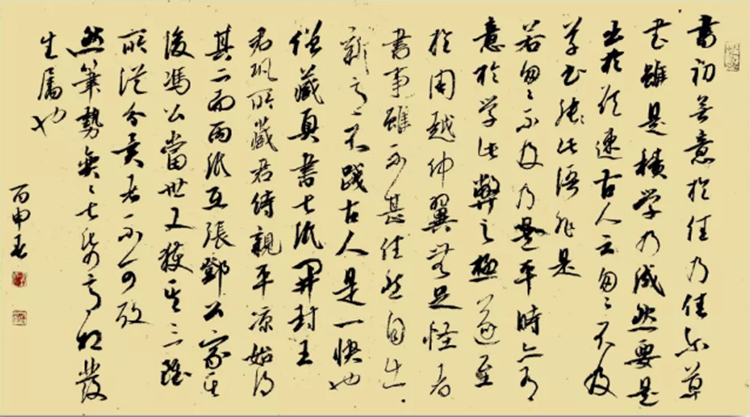 書初無意於佳乃佳尔草
书雖是積学乃成然要是
出於欲速古人云匆匆不及
草书此語非是
若匆匆不及乃是平時亦有
意於学此弊之極遂至
於周越仲翼無足怪者
書事雖不甚佳然自出
新意不踐古人是一快也
僧藏真書七紙開封王
君巩所藏君侍親平凉始得
其二而兩紙在張鄧公家其
後馮公當世又獲其三雖
所從分異者不可攷
然筆勢奕々七紙發
生属也
丙申春